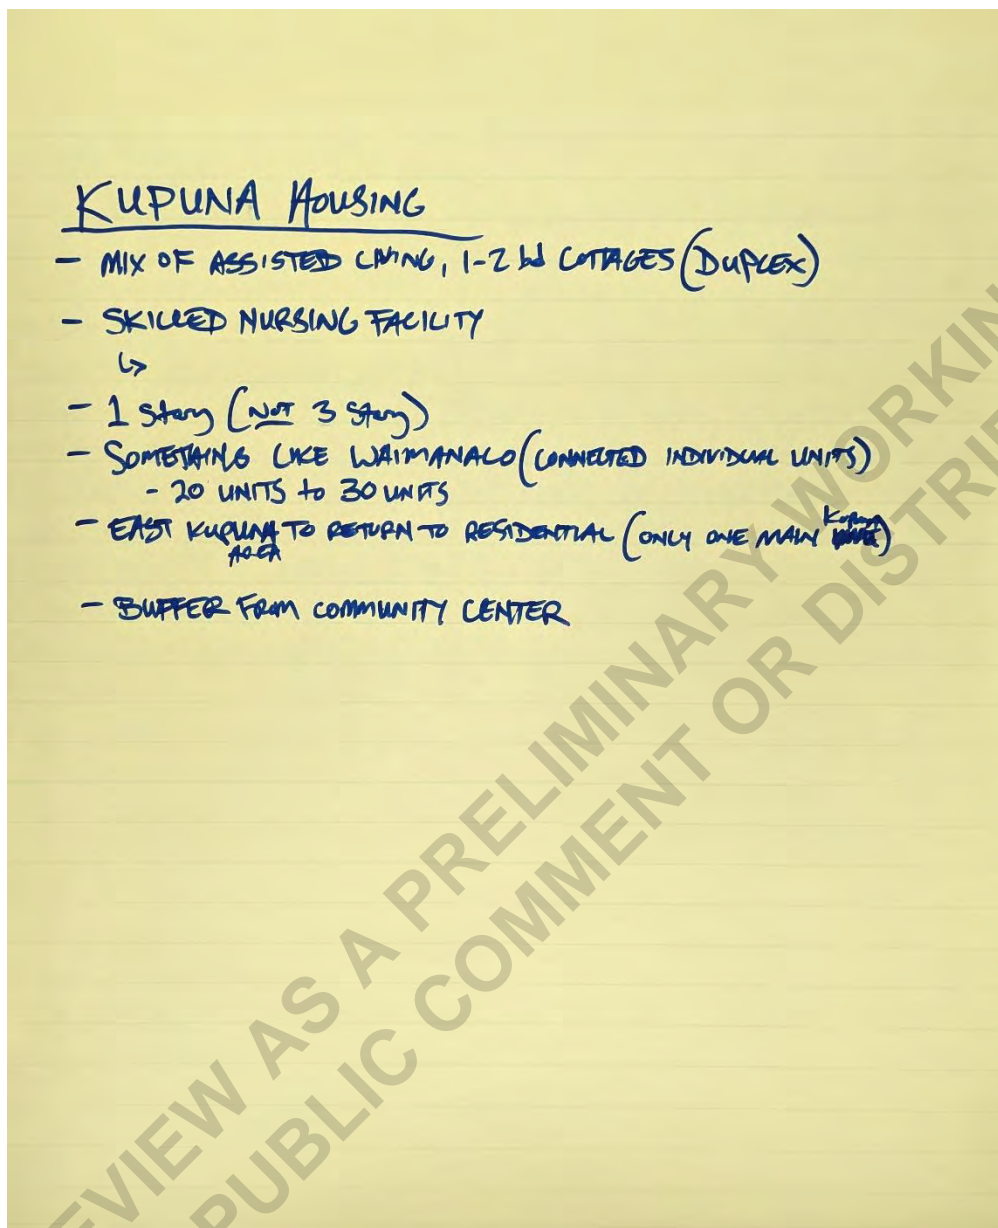 KUPUNA HOUSING
- MIX OF ASSISTED LIVING, 1-2 bd COTTAGES (DUPLEX)
- SKILLED NURSING FACILITY
↳
- 1 Story (NOT 3 Story)
- SOMETHING LIKE WAIMANALO (CONNECTED INDIVIDUAL UNITS)
- 20 UNITS to 30 UNITS
- EAST KUPUNA AREA TO RETURN TO RESIDENTIAL (ONLY ONE MAIN Kupuna)
- BUFFER FROM COMMUNITY CENTER
EVIEW AS A PRELIMINARY WORKIN
PUBLIC COMMENT OR DISTRI